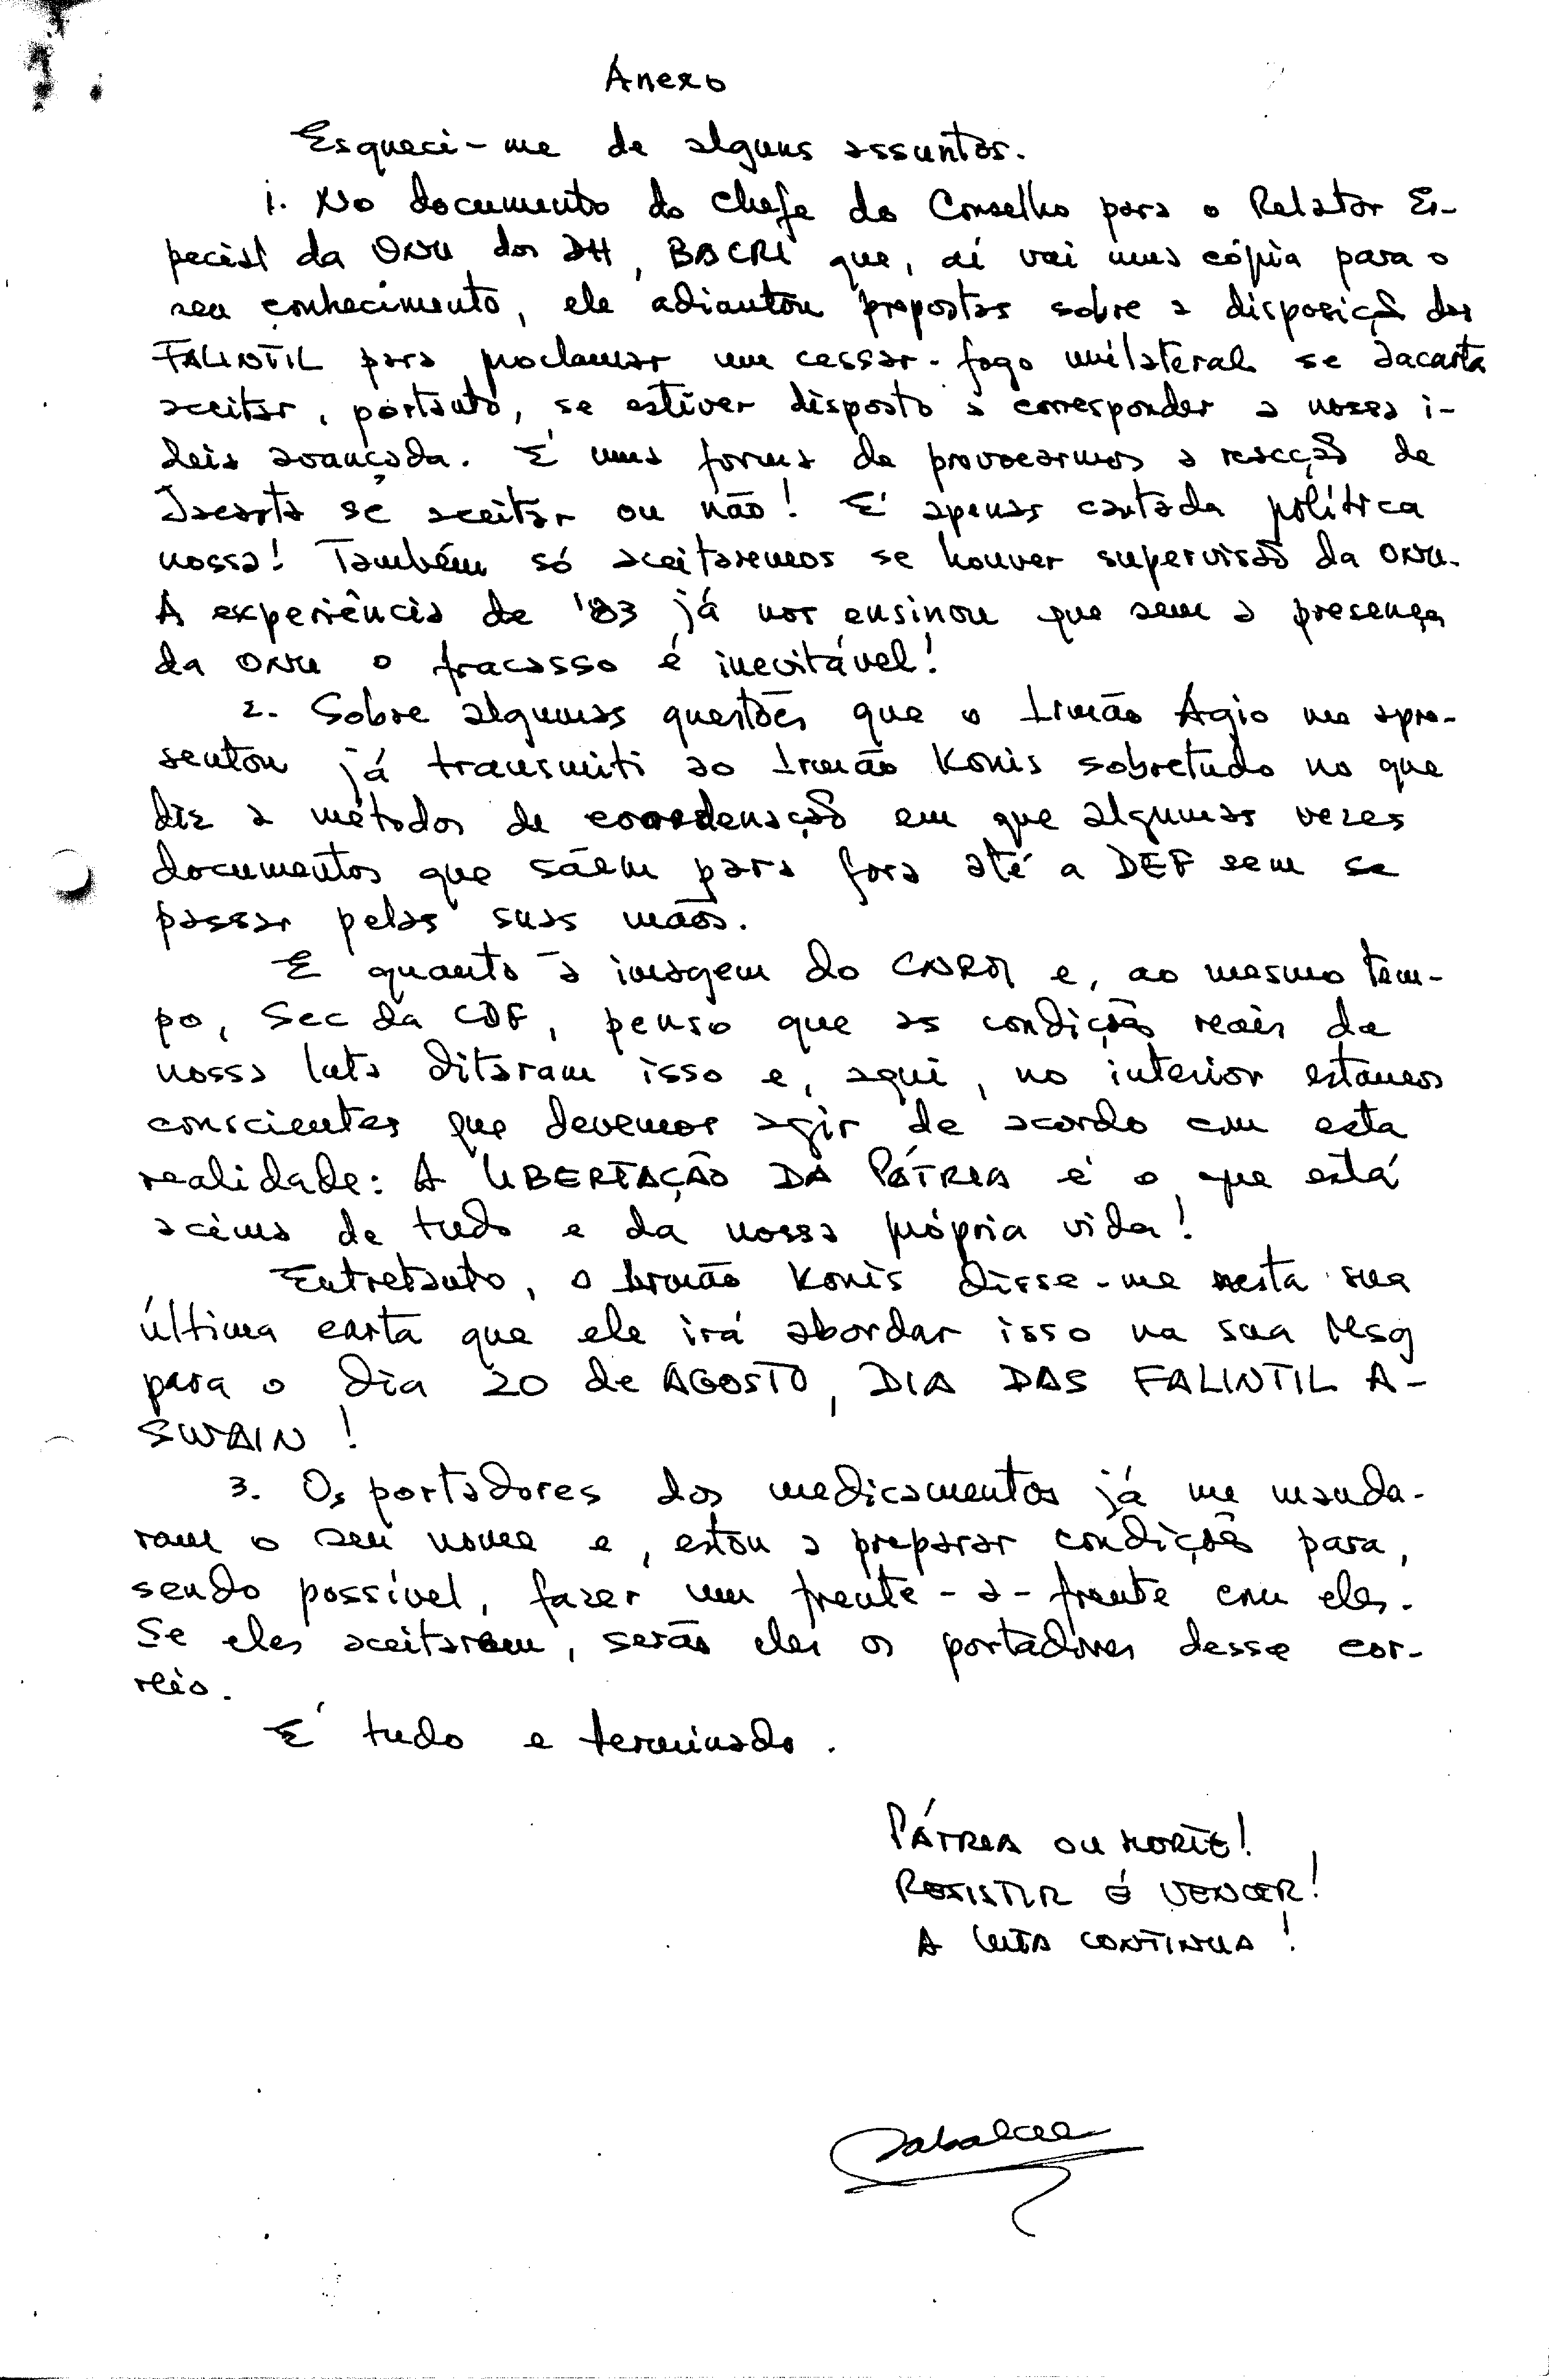 Anexo
Esqueci-me de alguns assuntos.
1. No documento do Chefe do Conselho para o Relator Es-
pecial da ONU dos DH, BACRE que, aí vai uma cópia para o
seu conhecimento, ele adiantou propostas sobre a disposição das
FALINTIL para proclamar um cessar-fogo unilateral se Jacarta
aceitar, portanto, se estiver disposto a corresponder a nossa i-
deia avançada. É uma forma de provocarmos a reacção de
Jacarta se aceitar ou não! É apenas cartada política
nossa! Também só aceitaremos se houver supervisão da ONU.
A experiência de '83 já nos ensinou que sem a presença
da ONU o fracasso é inevitável!
2. Sobre algumas questões que o Irmão Agio me apre-
sentou já transmiti ao Irmão Konis sobretudo no que
diz a métodos de coordenação em que algumas vezes
documentos que sáem para fora até a DEF sem se
passar pelas suas mãos.
E quanto à imagem do CNRM e, ao mesmo tem-
po, Sec da CDF, penso que as condições reais da
nossa luta ditaram isso e, aqui, no interior estamos
conscientes que devemos agir de acordo com esta
realidade: A LIBERTAÇÃO DA PÁTRIA é o que está
acima de tudo e da nossa própria vida!
Entretanto, o Irmão Konis disse-me nesta sua
última carta que ele irá abordar isso na sua Msg
para o dia 20 de AGOSTO, DIA DAS FALINTIL A-
SWAIN!
3. Os portadores dos medicamentos já me manda-
ram o seu nome e, estou a preparar condições para,
sendo possível, fazer um frente-a-frente com eles.
Se eles aceitarem, serão eles os portadores desse cor-
reio.
É tudo e terminado.
PÁTRIA OU MORTE!
RESISTIR É VENCER!
A LUTA CONTINUA!